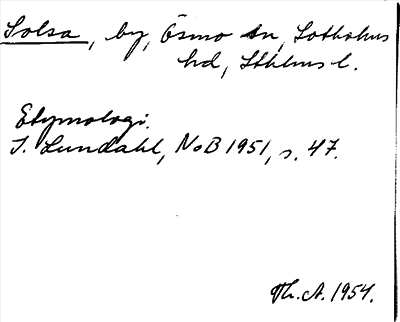 Solsa, by, Ösmo sn, Sotholms
hd, Sthlms l.
Etymologi.
I. Lundahl, NoB 1951, s. 47.
Th. A. 1954.